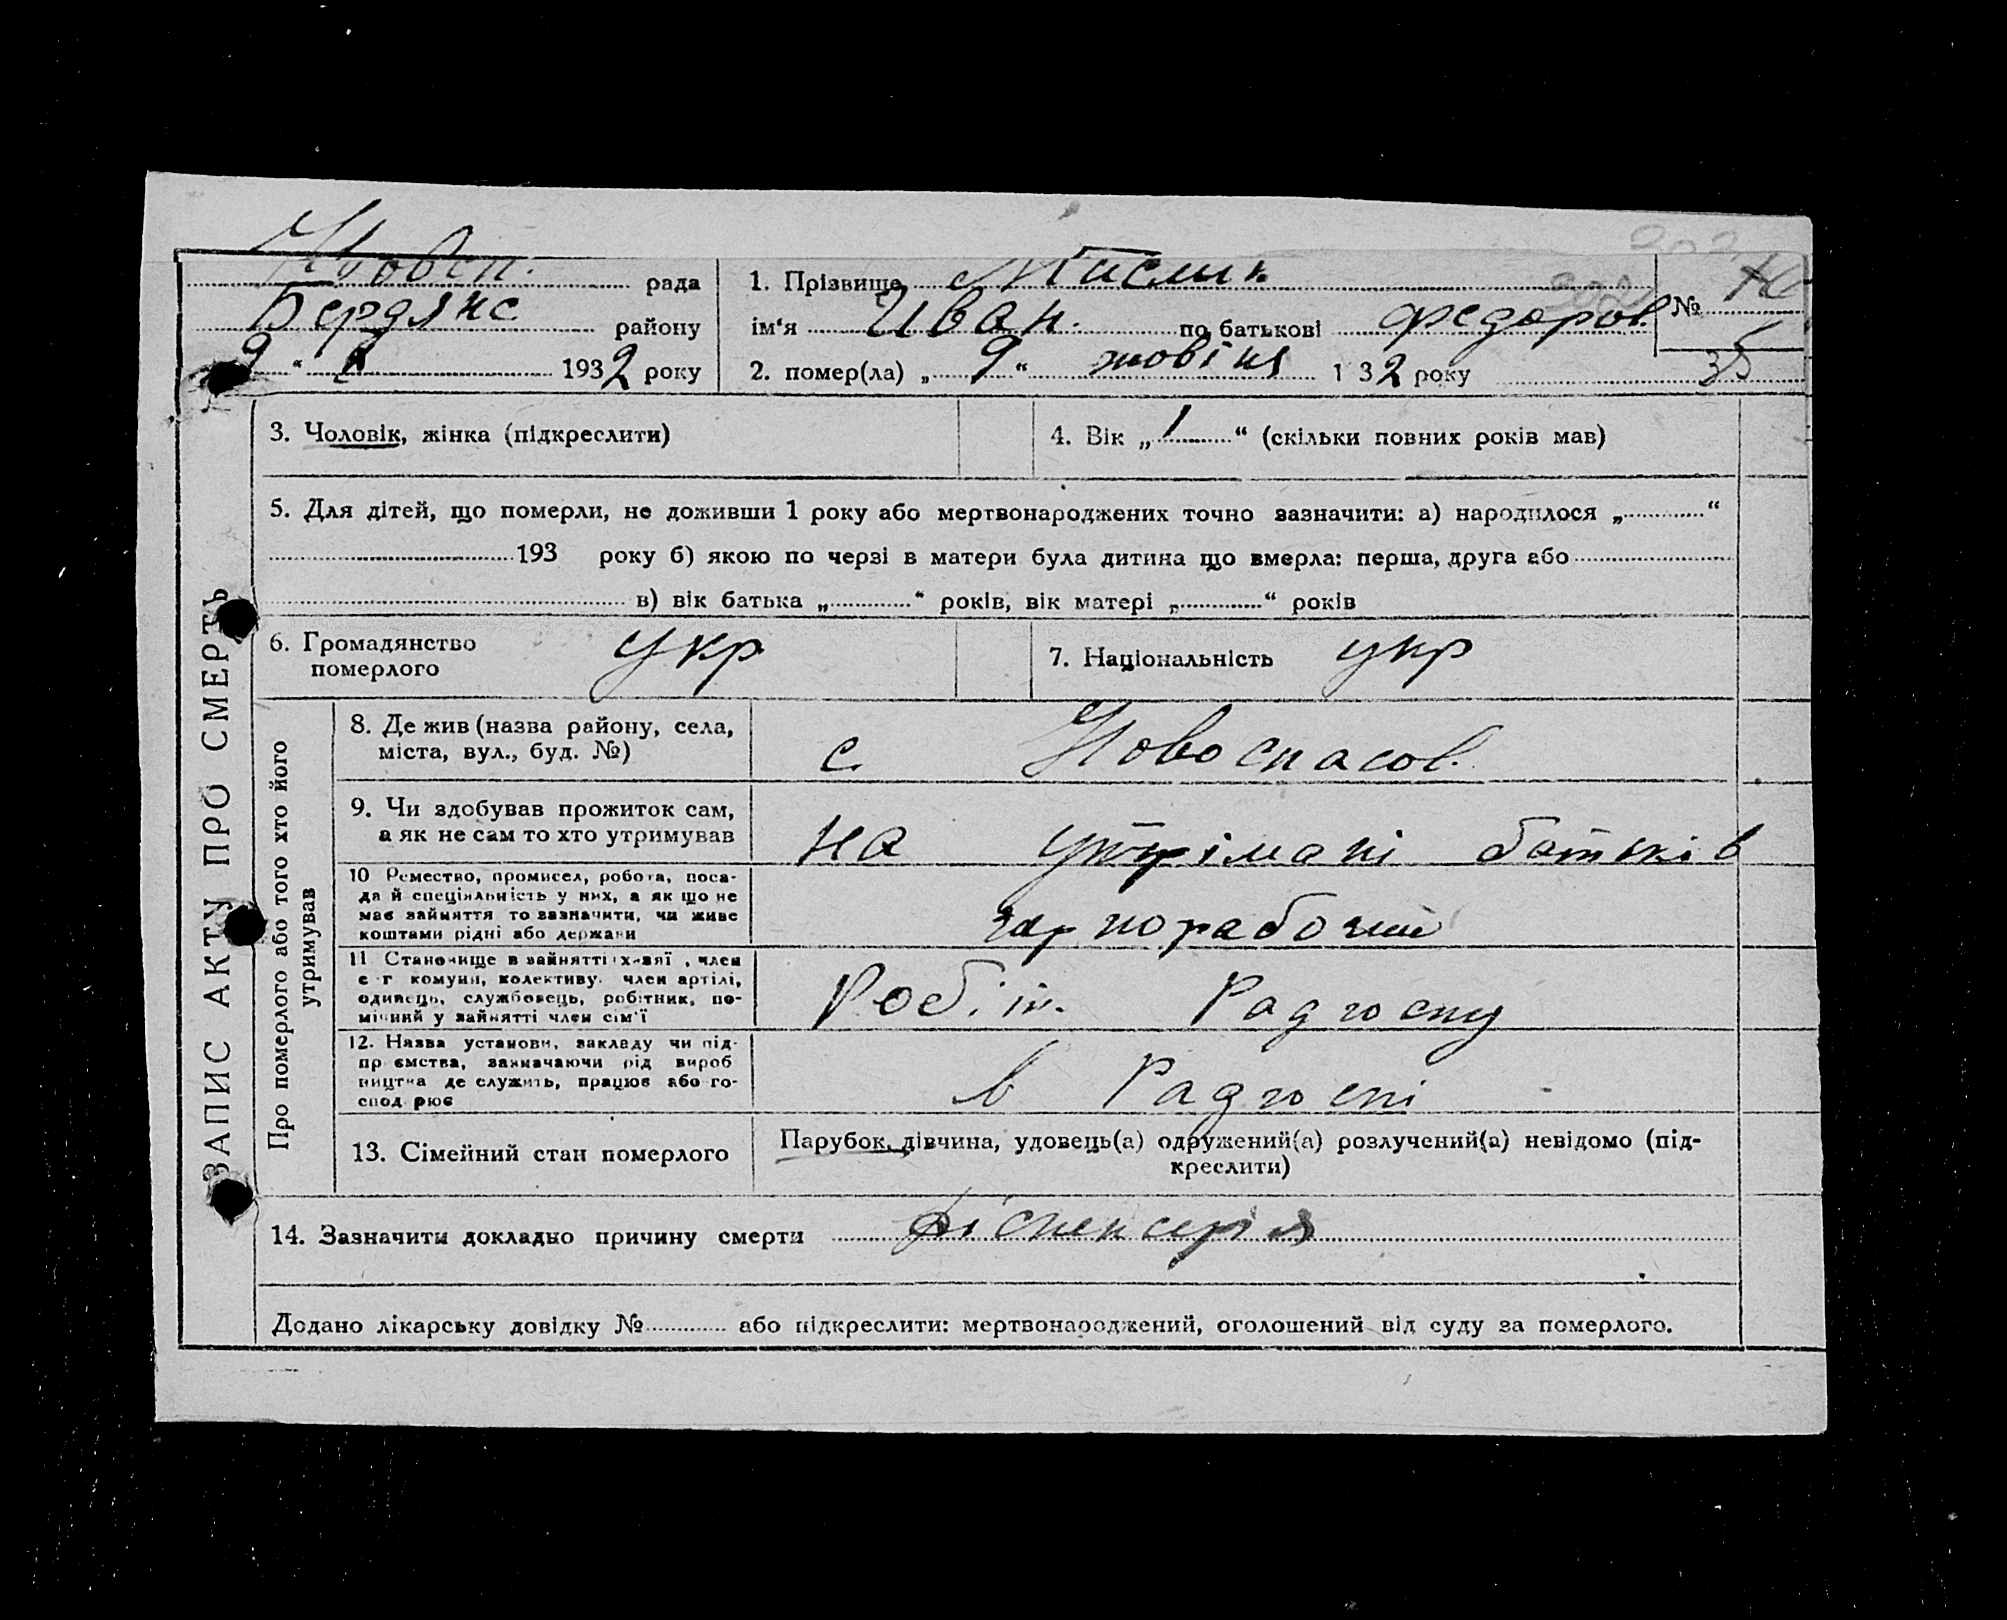 Новосп. рада
Бердянс району
9 " X 1932 року
1. Прізвище Мисмик
ім'я Иван. по батькові Федоров.
2. помер(ла) „ 9 “ жовтня 1 32 року
№
35
ЗАПИС АКТУ ПРО СМЕРТЬ
3. Чоловік, жінка (підкреслити)
4. Вік „ 1 “ (скільки повних років мав)
5. Для дітей, що померли, не доживши 1 року або мертвонароджених точно зазначити: а) народилося „ “
193 року б) якою по черзі в матери була дитина що вмерла: перша, друга або
в) вік батька „ “ років, вік матері „ “ років
6. Громадянство
померлого
укр
7. Національність укр
Про померлого або того хто його
утримував
8. Де жив (назва району, села,
міста, вул., буд. №)
с. Новоспасов.
9. Чи здобував прожиток сам,
а як не сам то хто утримував
на утрімані батьків
10 Ремество, промисел, робота, поса-
да й спеціяльність у них, а як що не
має зайняття то зазначити, чи живе
коштами рідні або держави
чорнорабочий
11 Становище в зайнятті: хазяї , член
с г комуни, колективу. член артілі,
одинець, службовець, робітник, по-
мічний у зайнятті член сім'ї
Робіт. Радгоспу
12. Назва установи, закладу чи під-
пр ємства, зазначаючи рід вироб
ництва де служить, працює або го-
спод рює
в Радгоспі
13. Сімейний стан померлого
Парубок, дівчина, удовець(а) одружений(а) розлучений(а) невідомо (під-
креслити)
14. Зазначити докладно причину смерти діспенсерія
Додано лікарську довідку № або підкреслити: мертвонароджений, оголошений від суду за померлого.